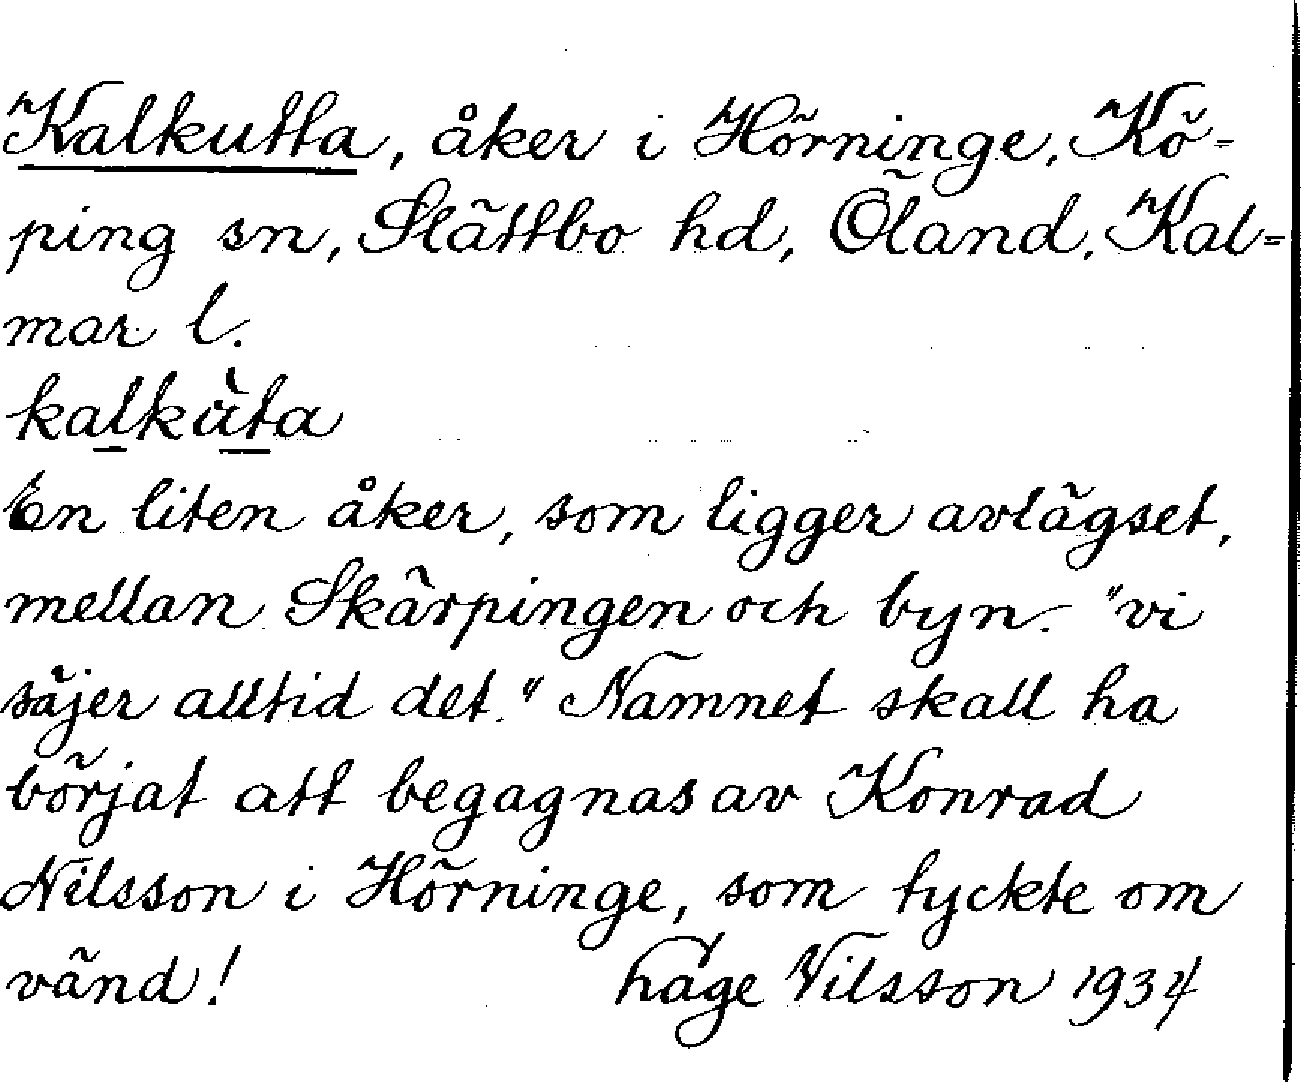 Kalkutta, åker i Hörninge, Kö-
ping sn, Slättbo hd, Öland, Kal-
mar l.
kalkùta
En liten åker, som ligger avlägset,
mellan Skärpingen och byn. "vi
säjer alltid det." Namnet skall ha
börjat att begagnas av Konrad
Nilsson i Hörninge, som tyckte om
vänd! Nilsson 1934